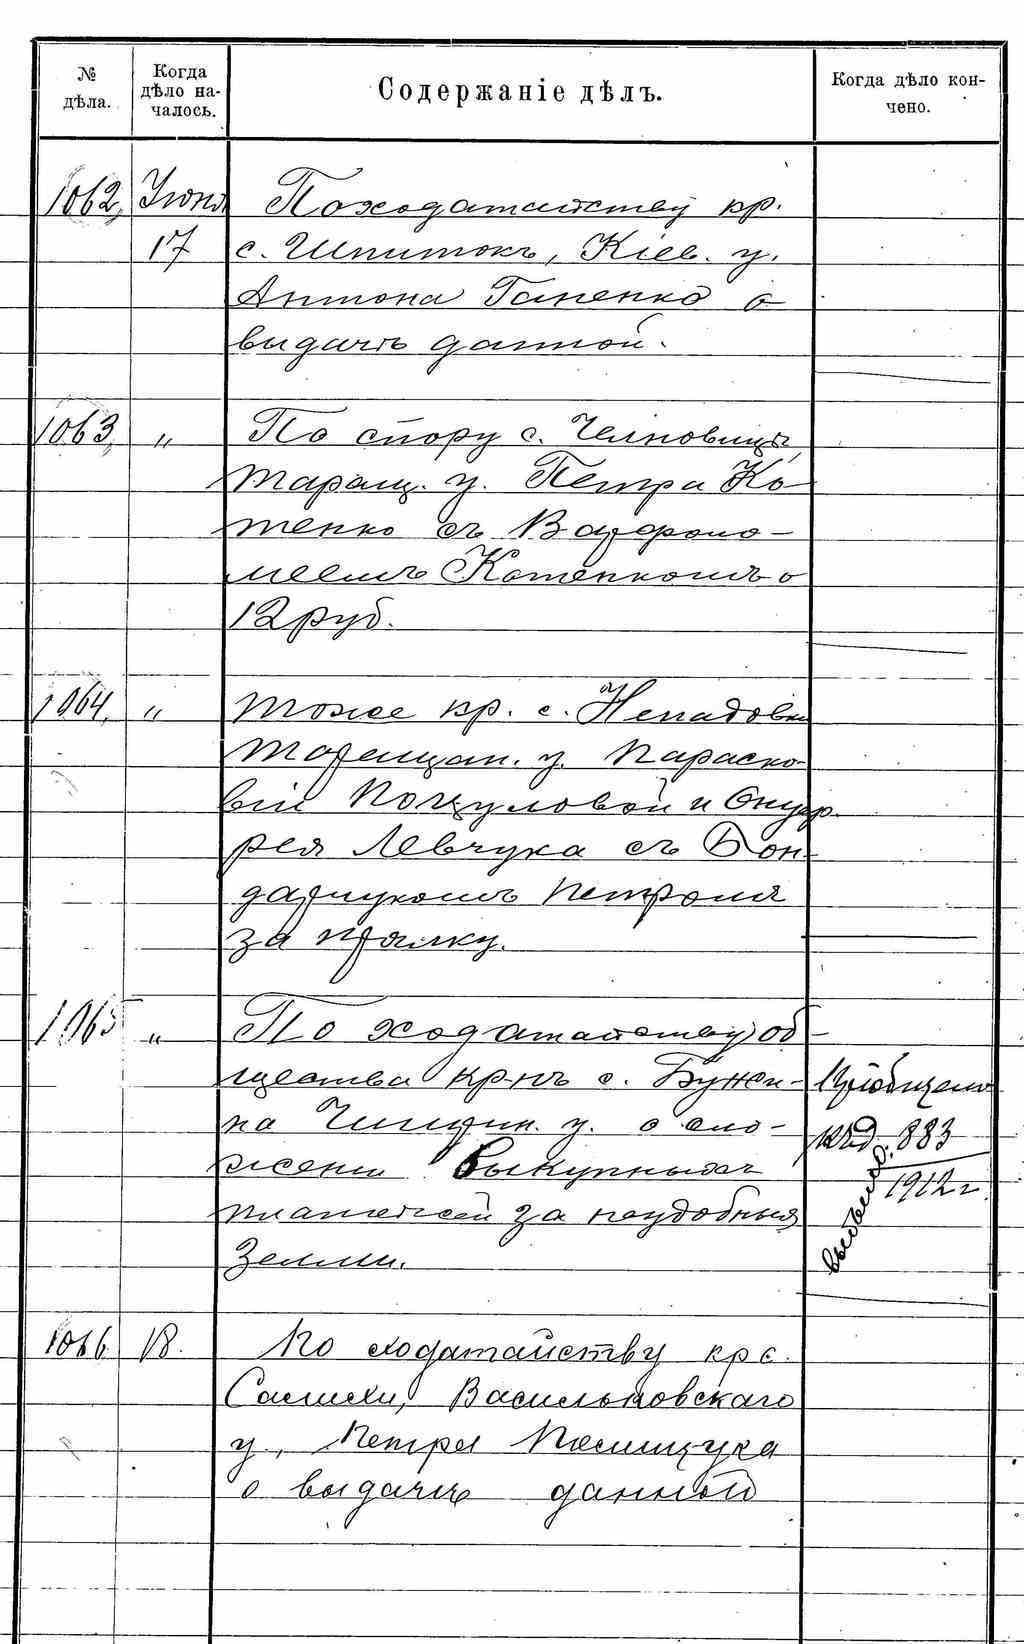 № дѣла.
Когда дѣло на-
чалось.
Содержаніе дѣлъ.
Когда дѣло кон-
чено.
1062, Іюня По ходатайству кр.
17 с. Шпитокъ, Кіев. у.
Антона Ганенко о
выдачѣ данной.
1063, " По спору с.
Таращ. у. Петра Ко-
тенко съ Варфоло-
меемъ Котенкомъ о
12 руб.
1064, " тоже кр. с. Непадовки
Таращан. у. Параско-
віи и Онуф-
рея Левчука съ Бон-
дарчукомъ Петромъ
за
1065 " По ходатайству об-
щества кр-нъ с. Бужи-
на Чигирин. у. о сло-
женіи выкупныхъ
платежей за неудобныя
земли.
Пріобщено
къ д. 883
1912 г.
1066 18. По ходатайству кр с.
Васильковскаго
у, Петра
о выдачѣ данной